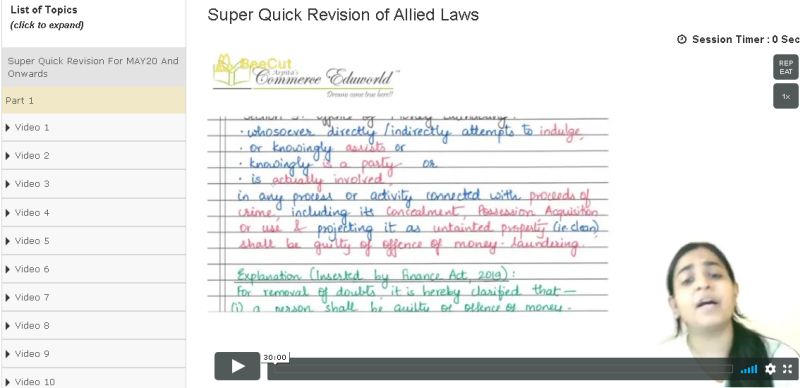 List of Topics
(click to expand)
Super Quick Revision For MAY20 And
Onwards
Part 1
Video 1
Video 2
Video 3
Video 4
Video 5
Video 6
Video 7
Video 8
Video 9
Video 10
Super Quick Revision of Allied Laws
Session Timer : 0 Sec
REP
EAT
1x
BeeCut
Arpita's
Commerce Eduworld
Dreams come true here!!
Section 3: Offence of Money Laundering:
• whosoever directly/indirectly attempts to indulge,
• or knowingly assists or
• knowingly is a party or
• is actually involved,
in any process or activity connected with proceeds of
crime, including its concealment, Possession Acquisition
or use & projecting it as untainted property (ie. clean)
shall be guilty of offence of money-laundering.
Explanation (Inserted by Finance Act, 2019):
For removal of doubts, it is hereby clarified that —
(i) a person shall be guilty of offence of money-
30:00